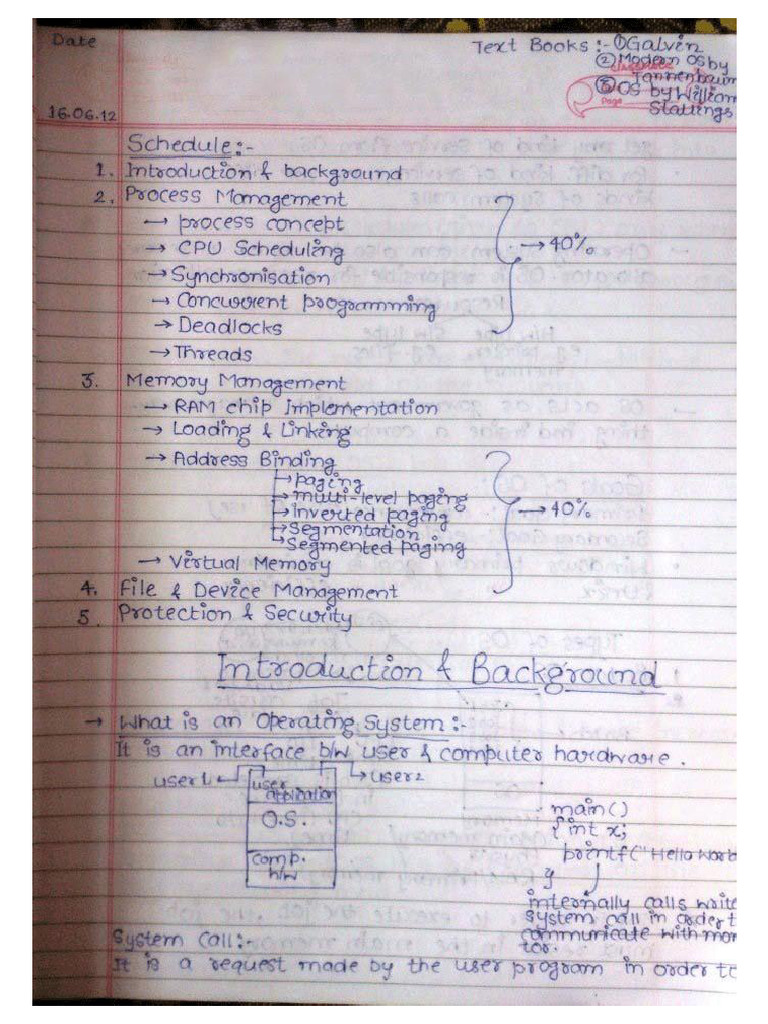 Date
Text Books :- ①Galvin
② Modern OS by
Tannenbaum
③ OS by William
Stallings
Page
16.06.12
Schedule:-
1. Introduction & background
2. Process Management
→ process concept
→ CPU Scheduling
→ Synchronisation
→ Concurrent programming
→ Deadlocks
→ Threads
→ 40%
3. Memory Management
→ RAM chip implementation
→ Loading & Linking
→ Address Binding
→ paging
→ multi-level paging
→ inverted paging
→ Segmentation
→ Segmented paging
→ Virtual Memory
→ 40%
4. File & Device Management
5. Protection & Security
Introduction & Background
→ What is an Operating System:-
It is an interface b/w user & computer hardware.
user1 user2
user application
O.S.
comp. h/w
main()
{ int x;
printf("Hello
}
internally calls write
system call in order t
communicate with mon
tor.
System Call:-
It is a request made by the user program in order to